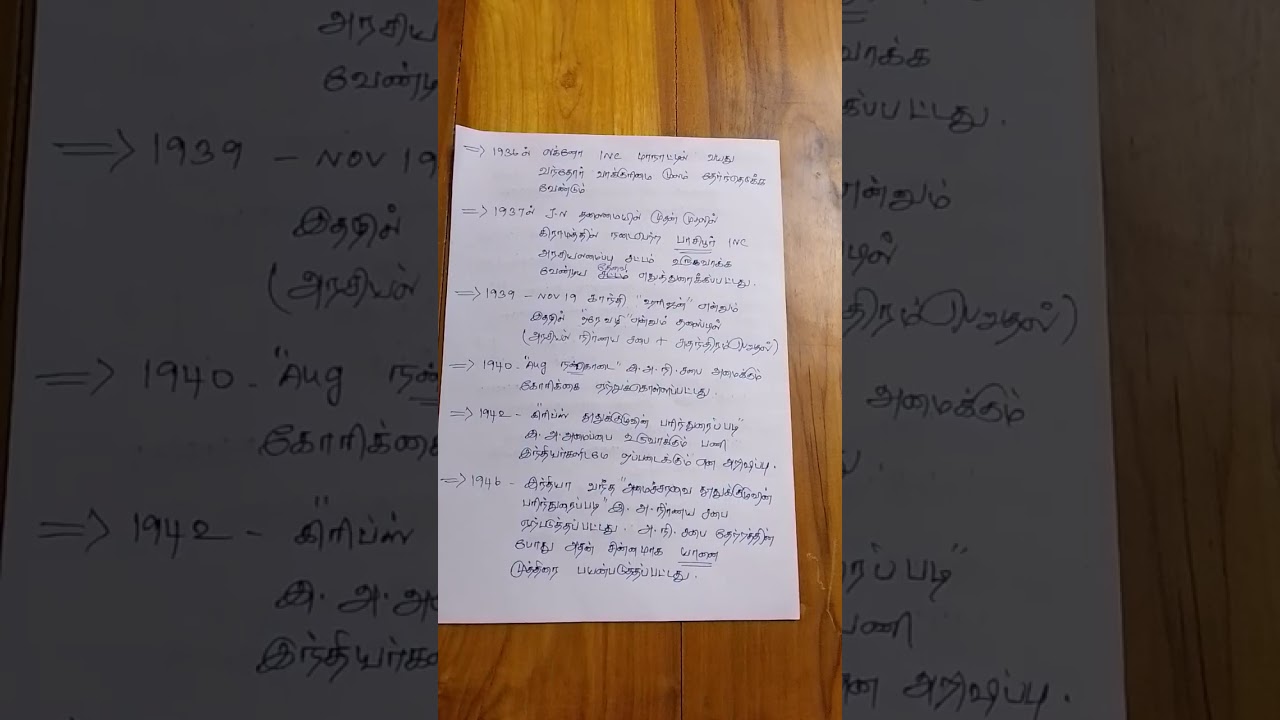 => 1936ல் லக்னோ INC மாநாட்டில் வயது
வந்தோர் வாக்குரிமை மூலம் தேர்ந்தெடுக்க
வேண்டும்
=> 1937ல் J.N தலைமையில் முதன் முதலில்
கிராமத்தில் நடைபெற்ற பாசிபூர் INC
அரசியலமைப்பு சட்டம் உருவாக்க
வேண்டிய தேவை சட்டம் எடுத்துரைக்கப்பட்டது.
=> 1939 - NOV 19 காந்தி "ஹரிஜன்" என்னும்
இதழில் "ஒரே வழி" என்னும் தலைப்பில்
(அரசியல் நிர்ணய சபை + சுதந்திரம் பெறுதல்)
=> 1940 - "Aug நன்கொடை" இ.அ.நி.சபை அமைக்கும்
கோரிக்கை ஏற்றுக்கொள்ளப்பட்டது.
=> 1942 - "கிரிப்ஸ் தூதுக்குழுவின் பரிந்துரைப்படி"
இ.அ.அமைப்பை உருவாக்கும் பணி
இந்தியர்களிடமே ஒப்படைக்கும் என அறிவிப்பு.
=> 1946 - இந்தியா வந்த "அமைச்சரவை தூதுக்குழுவின்
பரிந்துரைப்படி" இ.அ.நிர்ணய சபை
ஏற்படுத்தப்பட்டது. அ.நி.சபை தேர்தலின்
போது அதன் சின்னமாக யானை
முத்திரை பயன்படுத்தப்பட்டது.